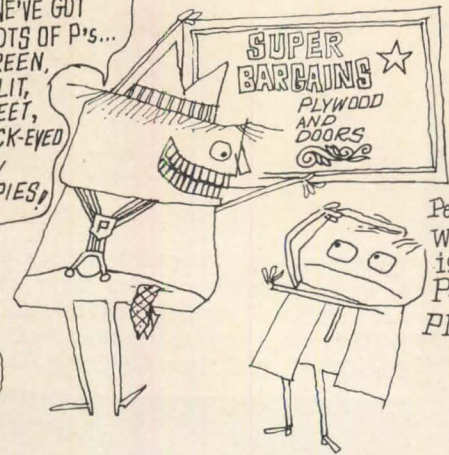 WE'VE GOT
OTS OF P's...
REEN,
LIT,
EET,
CK-EYED
PIES!
SUPER
BARGAINS
PLYWOOD
AND
DOORS
P
Pe
W
is
P